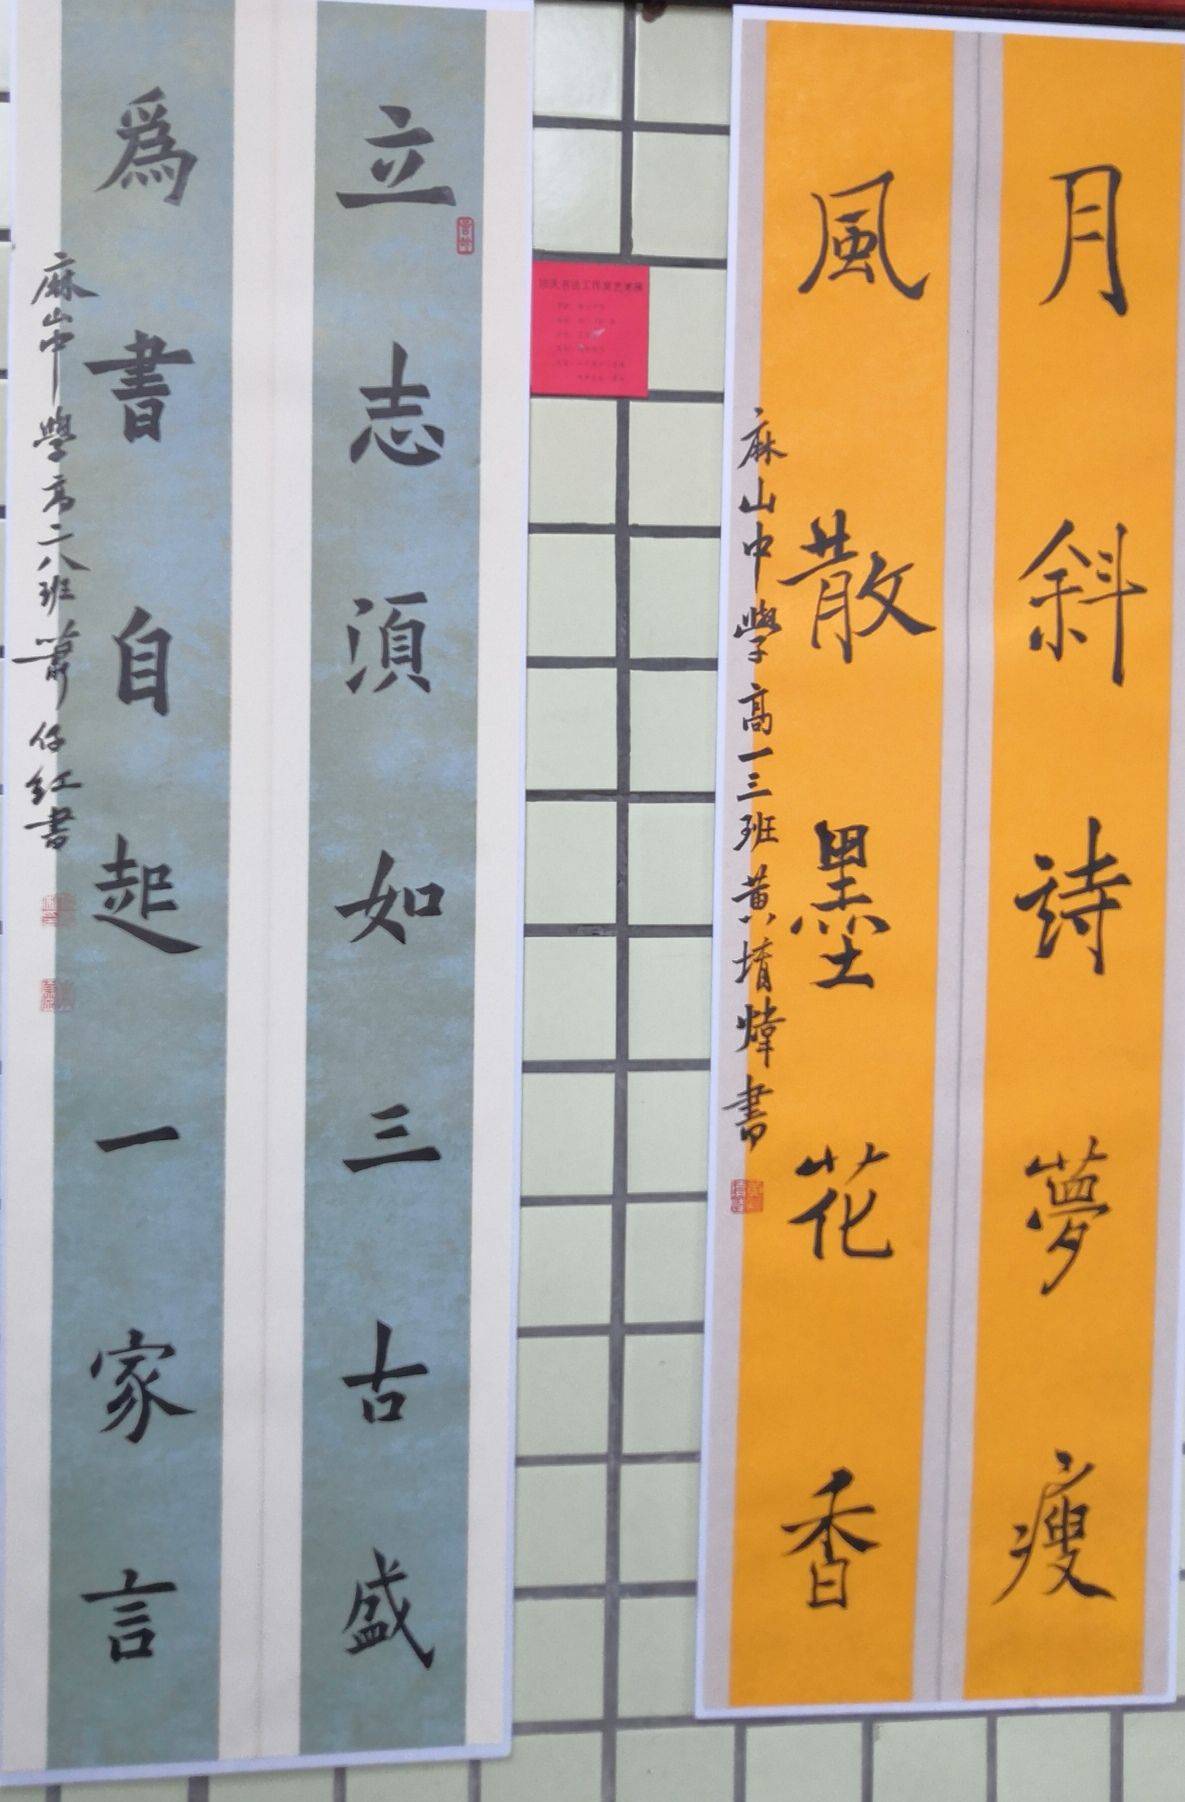 月斜詩夢瘦
風散墨花香
麻山中學高一三班黄堉煒書
立志須如三古盛
爲書自起一家言
麻山中學高二八班蕭仔紅書